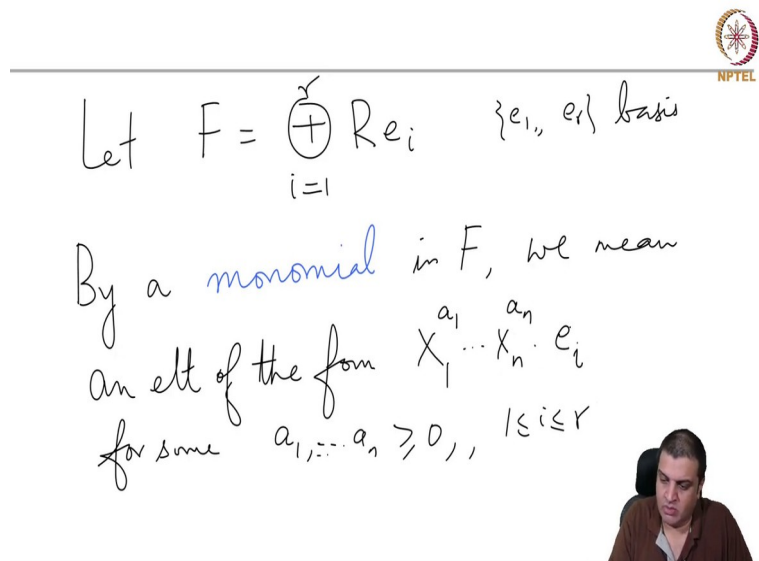 NPTEL
Let F = ⊕_{i=1}^{r} Re_i {e_1,, e_r} basis
By a monomial in F, we mean
an elt of the form X_1^{a_1} ... X_n^{a_n} · e_i
for some a_1, ... a_n ≥ 0,, 1 ≤ i ≤ r